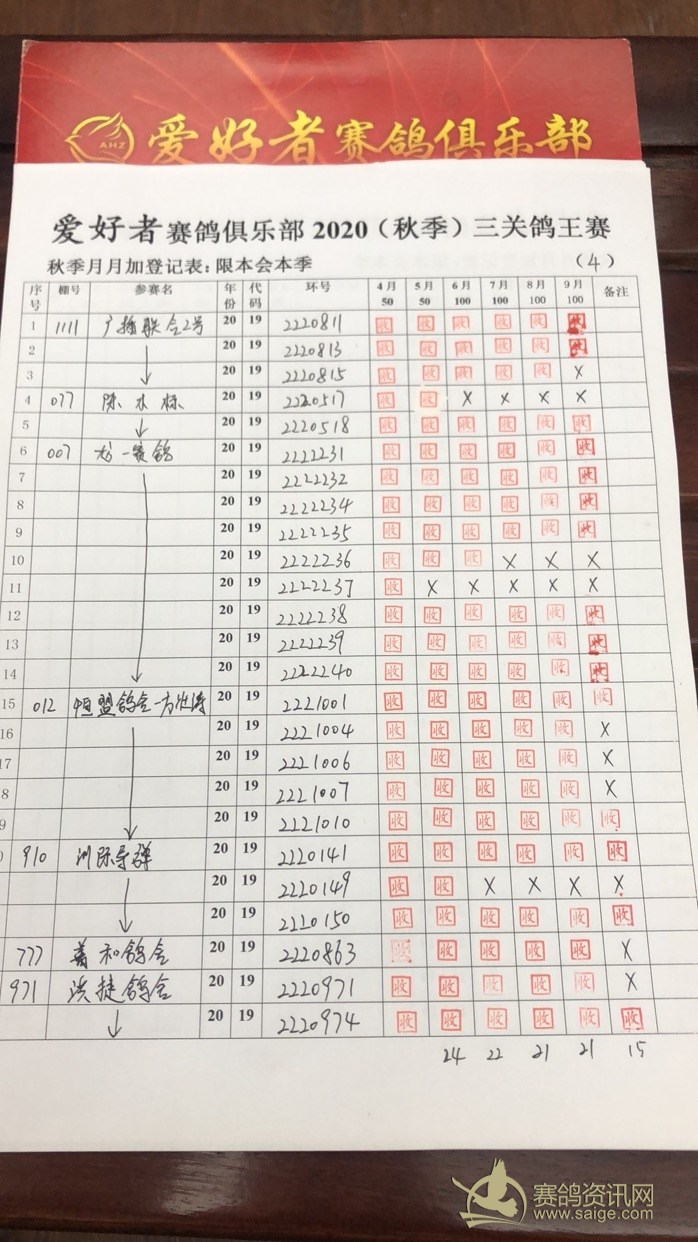 AHZ
爱好者赛鸽俱乐部
爱好者赛鸽俱乐部 2020（秋季）三关鸽王赛
秋季月月加登记表：限本会本季 （4）
序号 棚号 参赛名 年份 代码 环号 4月50 5月50 6月100 7月100 8月100 9月100 备注
1 1111 广播联合2号 20 19 2220811 收 收 收 收 收 收
2 20 19 2220813 收 收 收 收 收 收
3 20 19 2220815 收 收 收 收 收 X
4 077 陈木标 20 19 2220517 收 收 X X X X
5 20 19 2220518 收 收 收 收 收 收
6 007 一赛鸽 20 19 2222231 收 收 收 收 收 收
7 20 19 2222232 收 收 收 收 收 收
8 20 19 2222234 收 收 收 收 收 收
9 20 19 2222235 收 收 收 收 收 收
10 20 19 2222236 收 收 收 X X X
11 20 19 2222237 收 X X X X X
12 20 19 2222238 收 收 收 收 收 收
13 20 19 2222239 收 收 收 收 收 收
14 20 19 2222240 收 收 收 收 收 收
15 012 恒盟鸽舍-方 20 19 2221001 收 收 收 收 收 收
16 20 19 2221004 收 收 收 收 收 X
17 20 19 2221006 收 收 收 收 收 X
8 20 19 2221007 收 收 收 收 收 X
9 20 19 2221010 收 收 收 收 收 收
910 洲际导弹 20 19 2220141 收 收 收 收 收 收
20 19 2220149 收 收 X X X X
20 19 2220150 收 收 收 收 收 收
777 义和鸽舍 20 19 2220863 收 收 收 收 收 X
971 洪捷鸽舍 20 19 2220971 收 收 收 收 收 X
20 19 2220974 收 收 收 收 收 收
24 22 21 21 15
赛鸽资讯网
www.saige.com